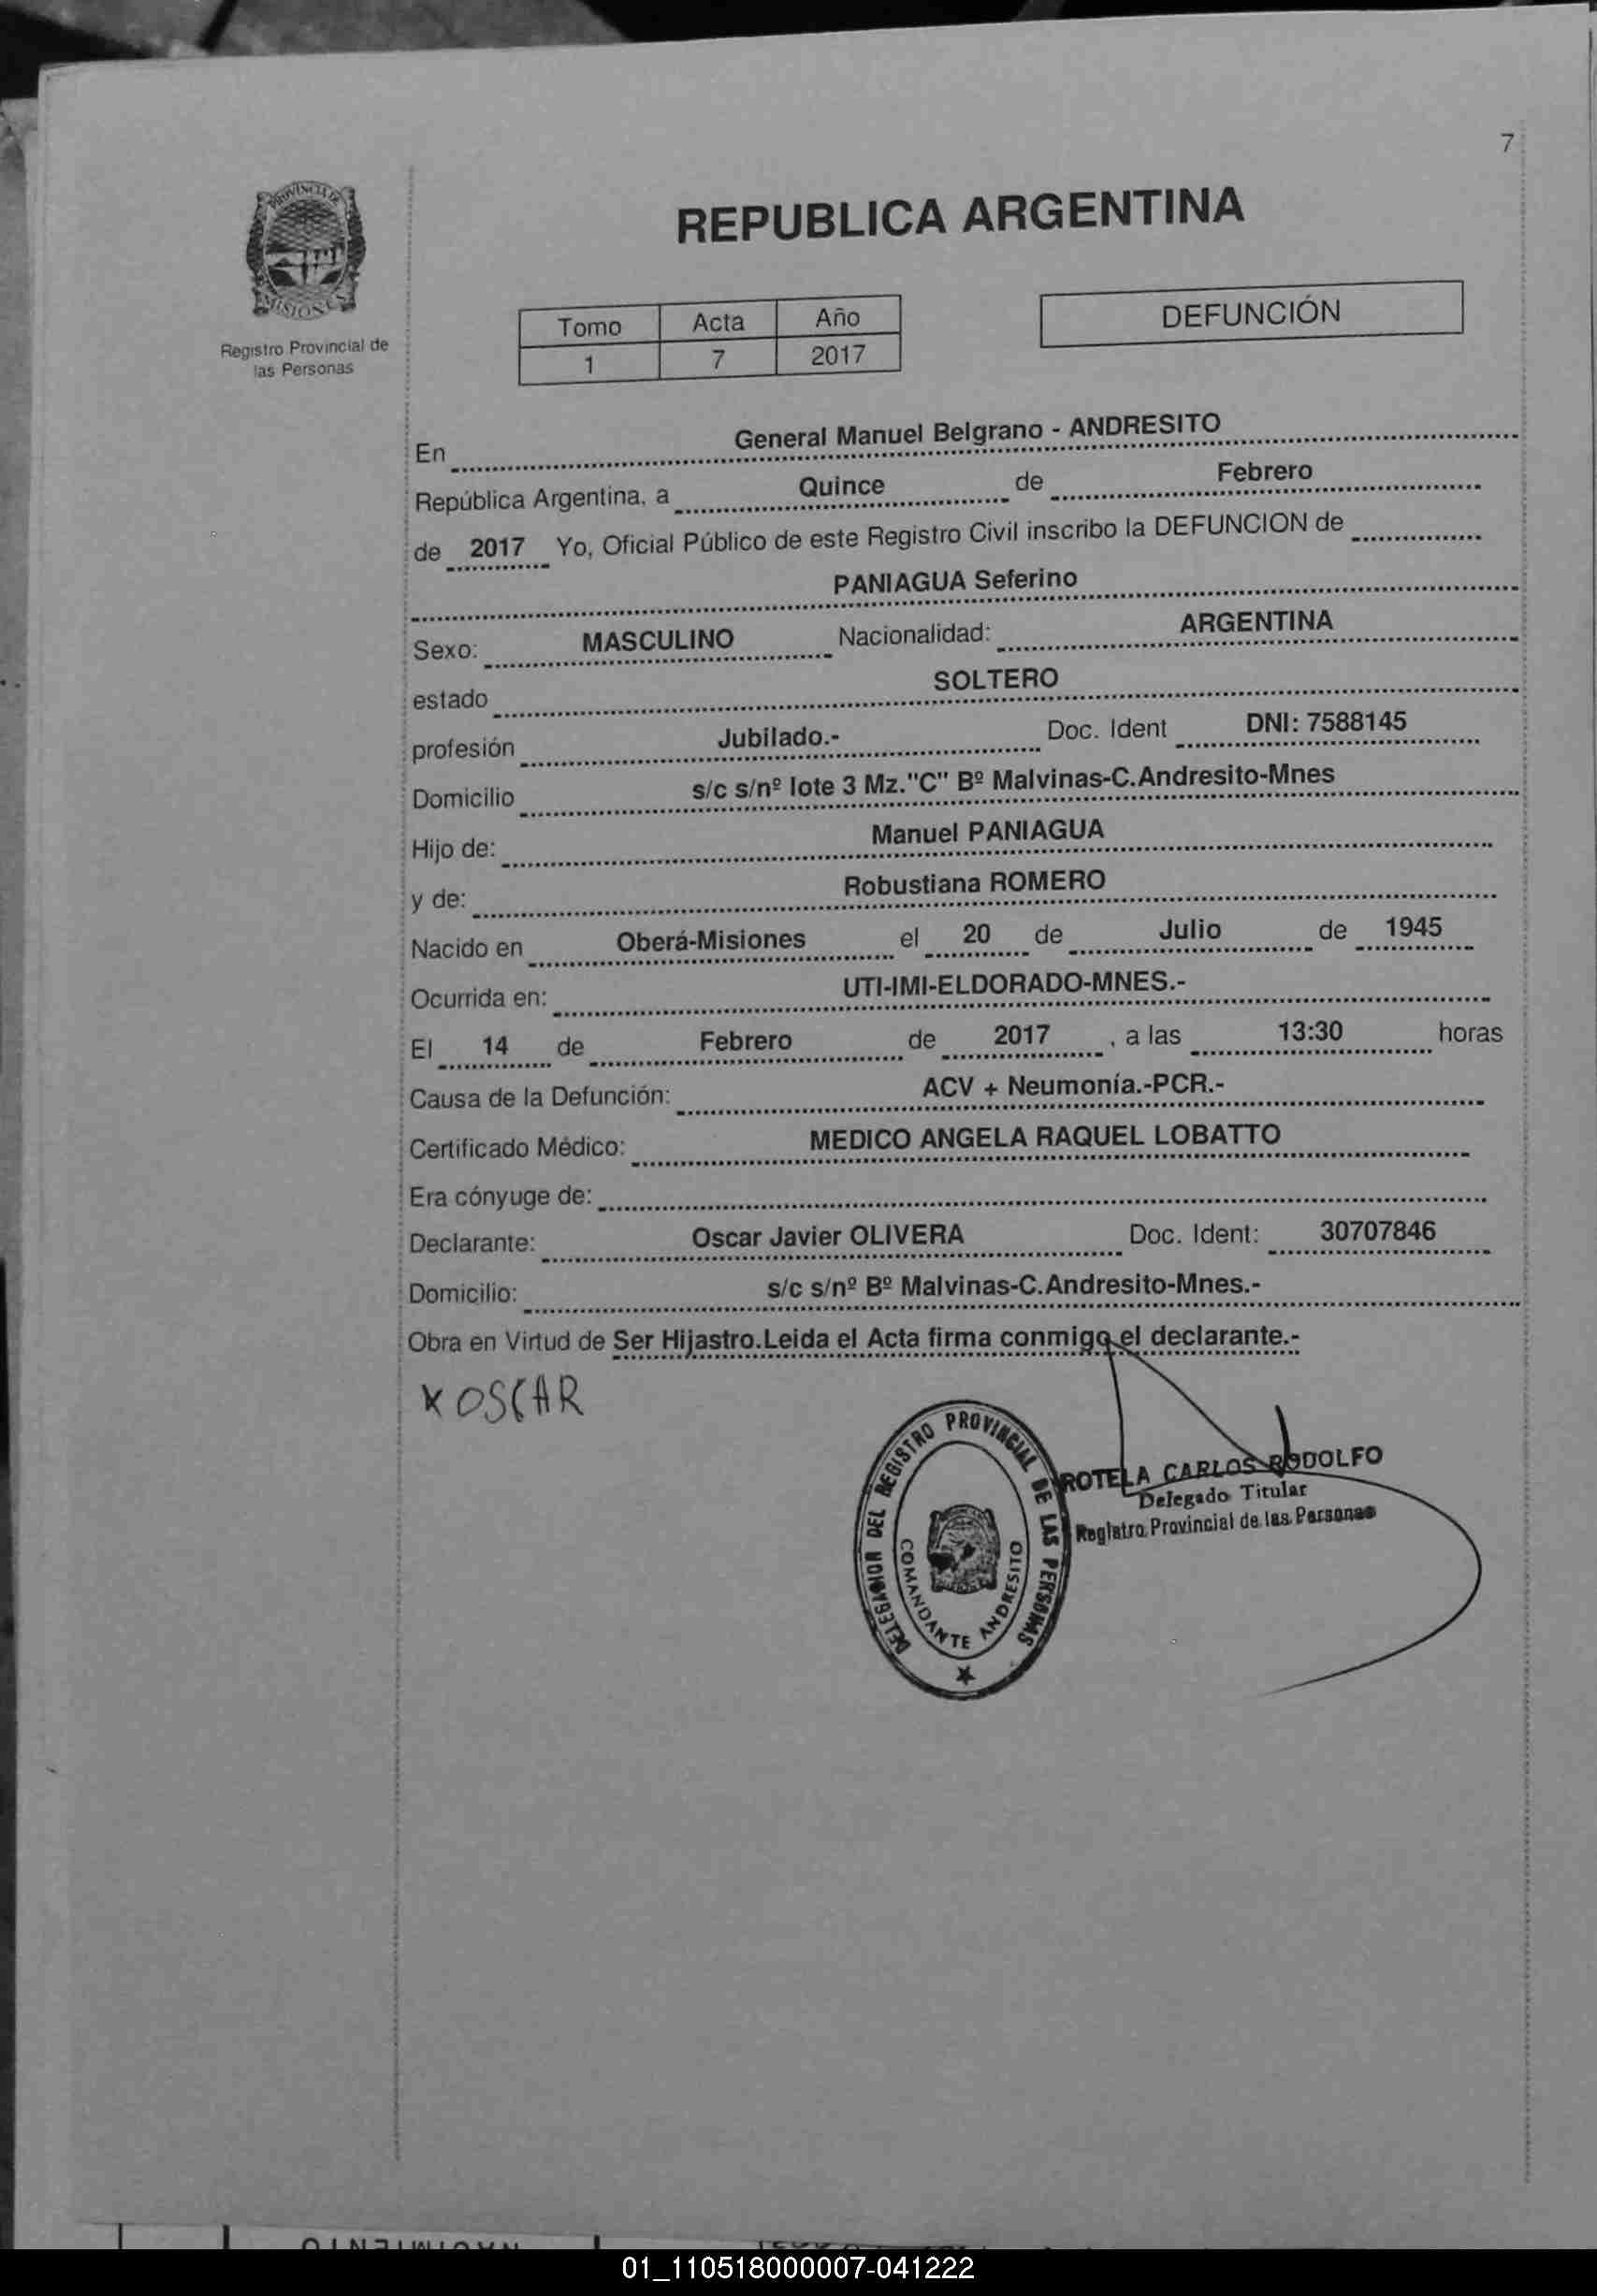 7
PROVINCIA DE
MISIONES
Registro Provincial de
las Personas
REPUBLICA ARGENTINA
Tomo Acta Año
1 7 2017
DEFUNCIÓN
En General Manuel Belgrano - ANDRESITO
República Argentina, a Quince de Febrero
de 2017 Yo, Oficial Público de este Registro Civil inscribo la DEFUNCION de
PANIAGUA Seferino
Sexo: MASCULINO Nacionalidad: ARGENTINA
estado SOLTERO
profesión Jubilado.- Doc. Ident DNI: 7588145
Domicilio s/c s/nº lote 3 Mz."C" Bº Malvinas-C.Andresito-Mnes
Hijo de: Manuel PANIAGUA
y de: Robustiana ROMERO
Nacido en Oberá-Misiones el 20 de Julio de 1945
Ocurrida en: UTI-IMI-ELDORADO-MNES.-
El 14 de Febrero de 2017 , a las 13:30 horas
Causa de la Defunción: ACV + Neumonía.-PCR.-
Certificado Médico: MEDICO ANGELA RAQUEL LOBATTO
Era cónyuge de:
Declarante: Oscar Javier OLIVERA Doc. Ident: 30707846
Domicilio: s/c s/nº Bº Malvinas-C.Andresito-Mnes.-
Obra en Virtud de Ser Hijastro.Leida el Acta firma conmigo el declarante.-
x OSCAR
DELEGACION DEL REGISTRO PROVINCIAL DE LAS PERSONAS
COMANDANTE ANDRESITO
ROTELA CARLOS RODOLFO
Delegado Titular
Registro Provincial de las Personas
01_110518000007-041222